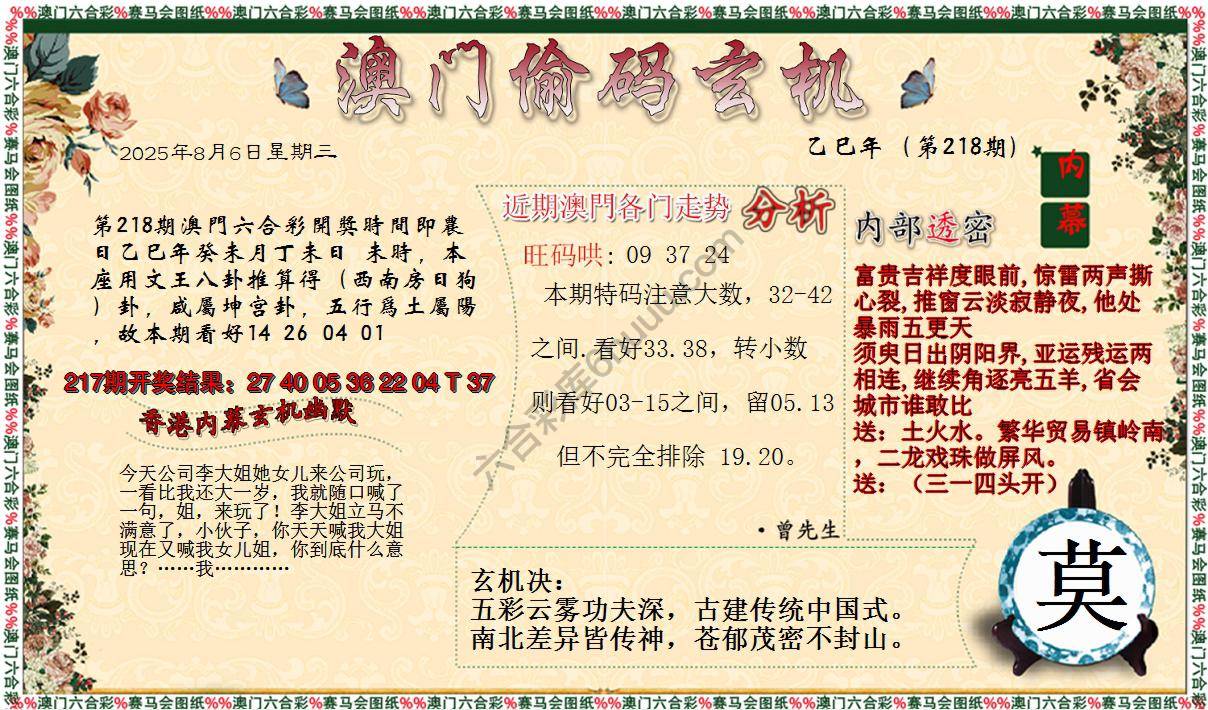 %%澳门六合彩%赛马会图纸%%澳门六合彩%赛马会图纸%%澳门六合彩%赛马会图纸%%澳门六合彩%赛马会图纸%%澳门六合彩%赛马会图纸%%澳门六合彩%赛马会图纸%%
澳门偷码玄机
2025年8月6日星期三
乙巳年（第218期）
第218期澳門六合彩開獎時間即農
日乙巳年癸未月丁未日 未時，本
座用文王八卦推算得（西南房日狗
）卦，咸屬坤宫卦，五行爲土屬陽
，故本期看好14 26 04 01
217期开奖结果：27 40 05 36 22 04 T 37
香港内幕玄机幽默
今天公司李大姐她女儿来公司玩，
一看比我还大一岁，我就随口喊了
一句，姐，来玩了！李大姐立马不
满意了，小伙子，你天天喊我大姐
现在又喊我女儿姐，你到底什么意
思？……我…………
近期澳門各门走势 分析
旺码哄: 09 37 24
本期特码注意大数，32-42
之间.看好33.38，转小数
则看好03-15之间，留05.13
但不完全排除 19.20。
·曾先生
六合彩库6huuu.com
内幕
内部透密
富贵吉祥度眼前,惊雷两声撕
心裂,推窗云淡寂静夜,他处
暴雨五更天
须臾日出阴阳界,亚运残运两
相连,继续角逐亮五羊,省会
城市谁敢比
送：土火水。繁华贸易镇岭南
，二龙戏珠做屏风。
送：（三一四头开）
玄机决：
五彩云雾功夫深，古建传统中国式。
南北差异皆传神，苍郁茂密不封山。
莫
%%澳门六合彩%赛马会图纸%%澳门六合彩%赛马会图纸%%澳门六合彩%赛马会图纸%%澳门六合彩%赛马会图纸%%澳门六合彩%赛马会图纸%%澳门六合彩%赛马会图纸%%